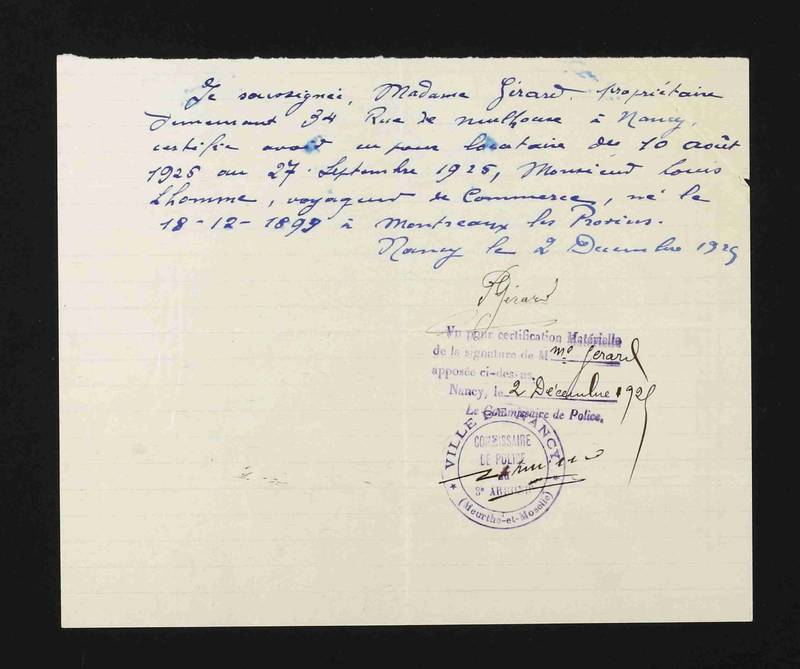 Je soussignée, Madame Gérard. propriétaire
demeurant 34 Rue de mulhouse à Nancy,
certifie avoir eu pour locataire du 10 août
1925 au 27 Septembre 1925, Monsieur Louis
Lhomme, voyageur de Commerce, né le
18-12-1899 à Montceaux les Provins.
Nancy le 2 Décembre 1925
Gérard
Vu pour certification Matérielle
de la signature de M me Gerard
apposée ci-dessus.
Nancy, le 2 Décembre 1925
Le Commissaire de Police,
VILLE DE NANCY
COMMISSAIRE
DE POLICE
du
3e ARRONDt
(Meurthe-et-Moselle)